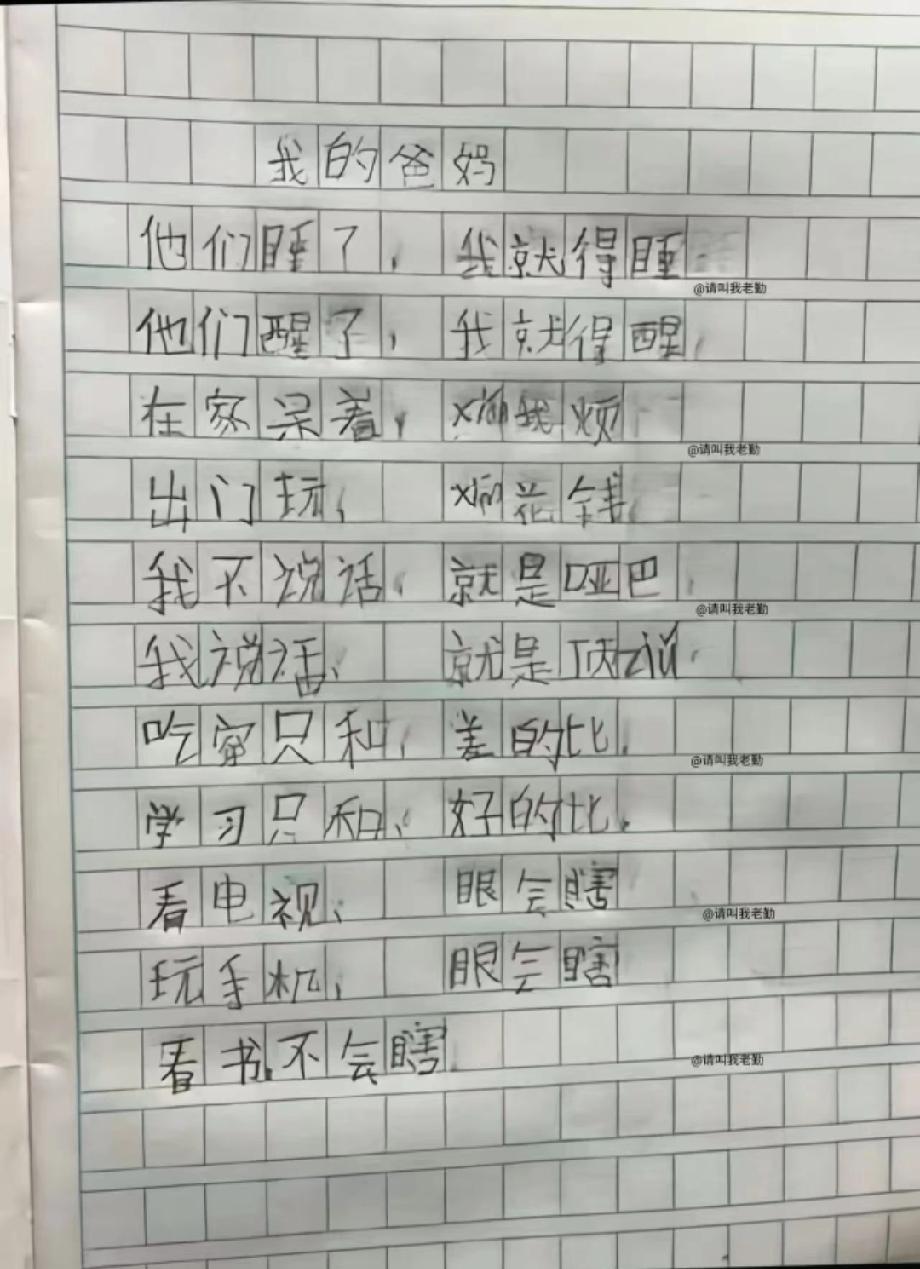 我的爸妈
他们睡了，我就得睡
@请叫我老勤
他们醒了，我就得醒，
在家呆着，xián我烦
@请叫我老勤
出门玩，xián花钱，
我不说话，就是哑巴，
@请叫我老勤
我说话，就是顶zuǐ，
吃穿只和，差的比，
@请叫我老勤
学习只和，好的比。
看电视，眼会瞎
@请叫我老勤
玩手机，眼会瞎
看书不会瞎。
@请叫我老勤